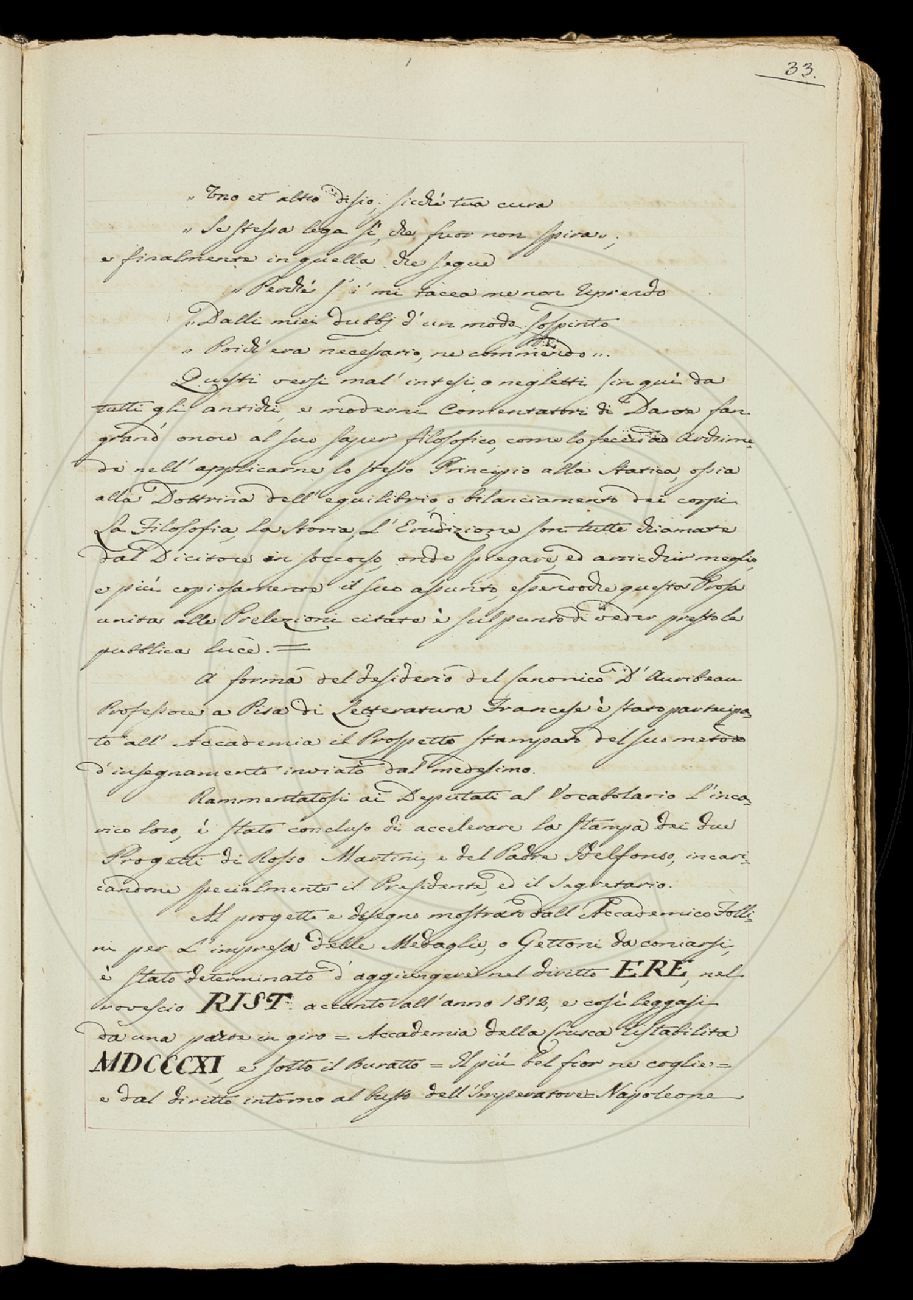 33.
„ Uno et altro disio, sicchè tua cura
„ Se stessa lega sì, che fuor non spira „;
e finalmente in quella che segue
„ Perchè s' i' mi tacea me non riprendo
„ Dalli miei dubbj d' un modo sospinto
„ Poich' era necessario, nè commendo „.
Questi versi mal' intesi, o negletti sin quì da
tutti gli antichi, e moderni Comentatori di Dante fan
grand' onore al suo saper filosofico, come lo fecero ad Archime-
de nell' applicarne lo stesso Principio alla Statica, ossia
alla Dottrina dell' equilibrio, o bilanciamento dei corpi.
La Filosofia, la Storia, L' Erudizione son tutte chiamate
dal Dicitore in soccorso, onde spiegare, ed arricchir meglio,
e più copiosamente il suo assunto, essendochè questa Prosa
unita alle Prelezioni citate è sul punto di veder presto la
pubblica luce. =
A forma del desiderio del Canonico D' Auribeau
Professore a Pisa di Letteratura Francese è stato partecipa-
to all' Accademia il Prospetto stampato del suo metodo
d' insegnamento inviato dal medesimo.
Rammentatosi ai Deputati al Vocabolario L' inca-
rico loro, è stato concluso di accelerare la stampa dei due
Progetti di Rosso Martini, e del Padre Idelfonso, incari-
candone specialmente il Presidente, ed il Segretario.
Al progetto e disegno mostrato dall' Accademico Folli-
ni per L' impresa delle Medaglie, o Gettoni da coniarsi,
è stato determinato d' aggiungere nel diritto ERE, nel
rovescio RIST. accanto all' anno 1812, e così leggasi
da una parte in giro = Accademia della Crusca ristabilita
MDCCCXI, e sotto il Buratto = Il più bel fior ne coglie =
e dal diritto intorno al busto dell' Imperatore = Napoleone